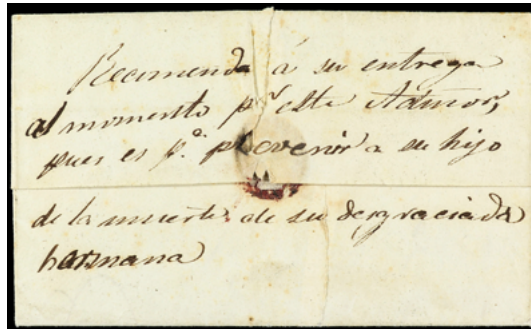 Recomenda á su entrega
al momento pr este Admor,
pues es pa. prevenir a su hijo
de la muerte de su desgraciada
hermana